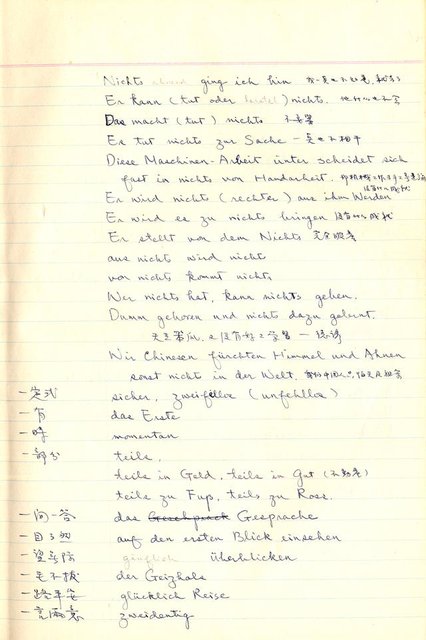 Nichts ahnend ging ich hin
Er kann (tut oder) nichts. 他什么也不会
Das macht (tut) nichts 不要紧
Er tut nichts zur Sache 一点也不相干
Diese Maschinen-Arbeit unter scheidet sich
fast in nichts von Handarbeit.
Er wird nichts (rechter) aus ihm Werden
Er wird es zu nichts bringen 没有什么成就
Er stellt vor dem Nichts
aus nichts wird nichts
von nichts kommt nichts
Wer nichts hat, kann nichts geben.
Dumm geboren und nichts dazu gelernt.
Wir Chinesen fürchten Himmel und Ahnen
sonst nichts in der Welt.
一定式 sicher, zweifellox (unfehllox)
一有 das Erste
一時 momentan
一部分 teils,
teils in Geld, teils in Gut
teils zu Fup, teils zu Ross.
一问一答 das Gespräche
一目了然 auf den ersten Blick einsehen
一望 überblicken
一毛不拔 der Geizhals
一路平安 glücklich Reise
一言兩意 zweideutig